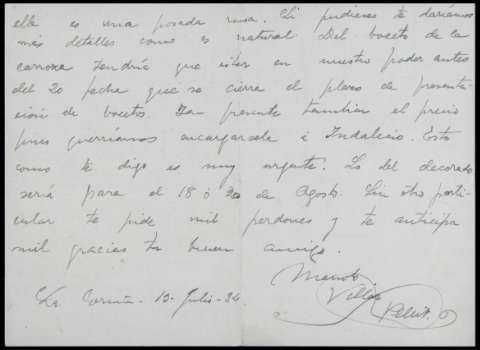 ella es una posada rusa. Si pudieres te daríamos
más detalles como es natural. Del boceto de la
carroza tendría que estar en nuestro poder antes
del 20 fecha que se cierra el plazo de presenta-
ción de bocetos. Ten presente también el precio
pues querríamos encargarsela á Indalecio. Esto
como te digo es muy urgente. Lo del decorado
sería para el 18 ó 20 de Agosto. Sin otro parti-
cular te pide mil perdones y te anticipa
mil gracias tu buen amigo.
Manolo
La Coruña. 10-Julio-34